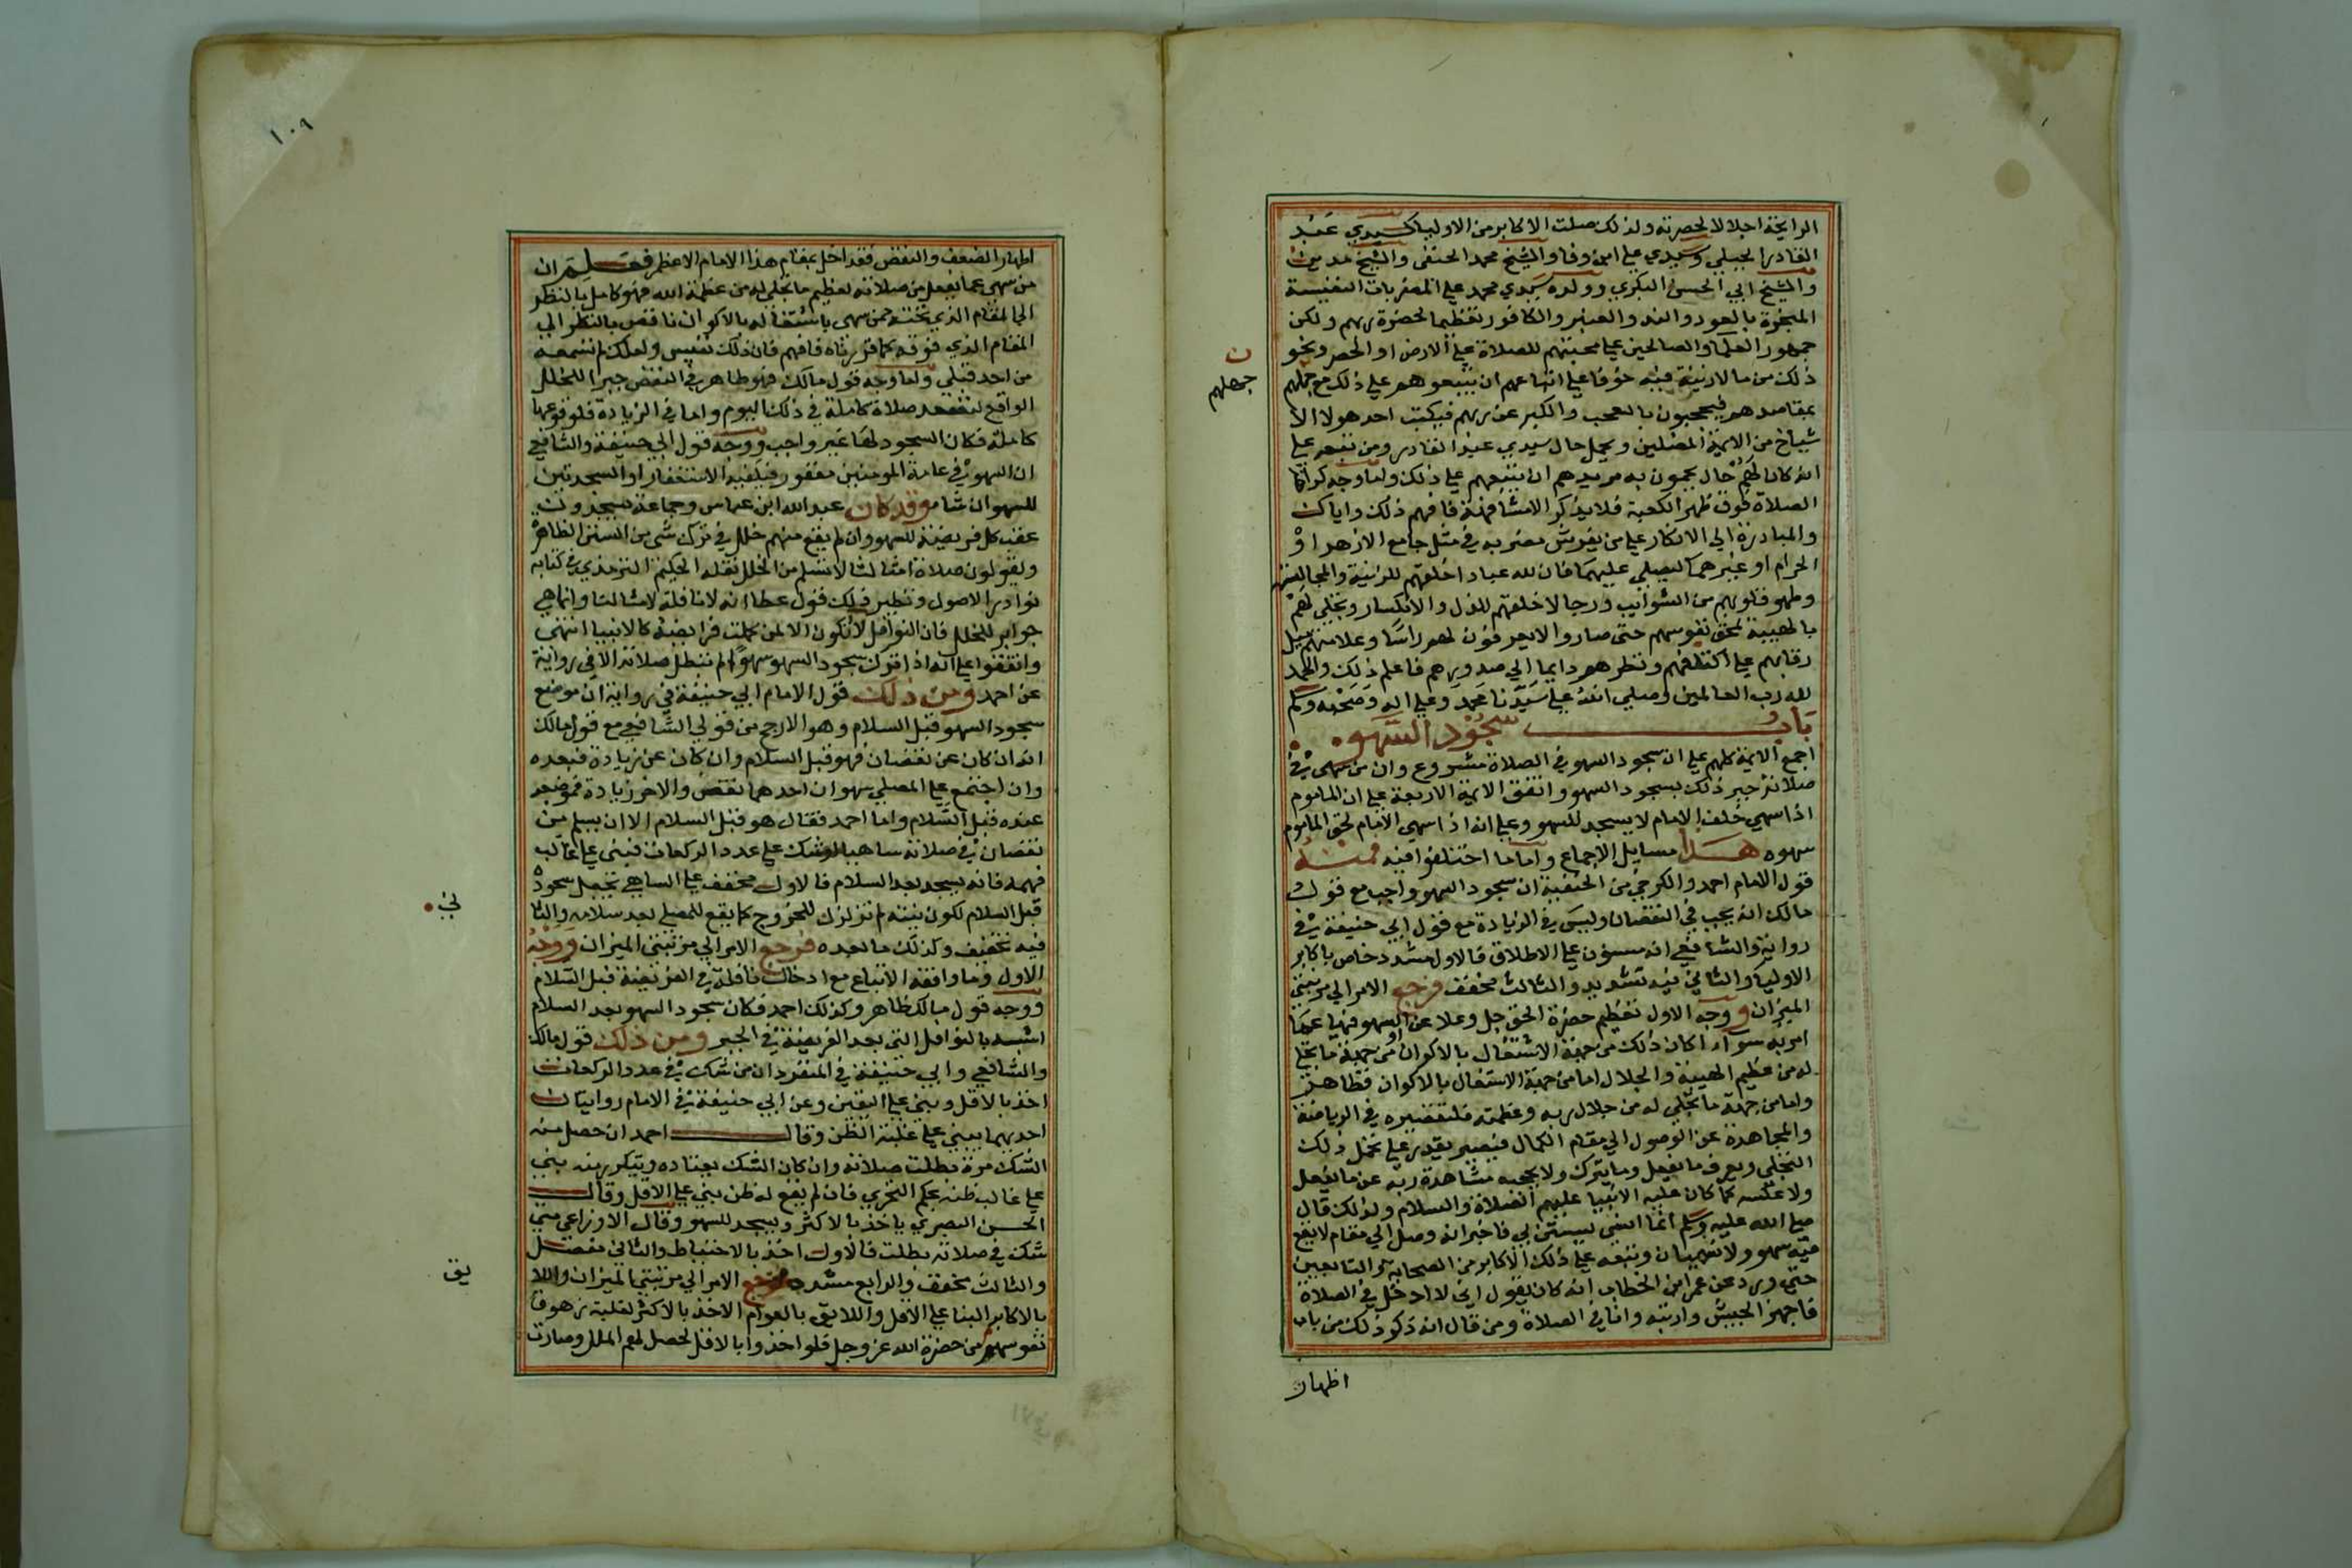 الرايحة اجلالا لحضرته ولذلك صلت الاكابر من الاوليا كسيدي عبد
القادر الجيلي وسيدي علي ابن وفا والشيخ محمد الحنفي والشيخ مدين
والشيخ ابي الحسن البكري وولده سيدي محمد علي المضربات النفيسة
المبخرة بالعود والند والعنبر والكافور تعظيما لحضرة ربهم ولكن
جمهور العلما والصالحين علي محبتهم للصلاة علي الارض او الحصر ونحو
ذلك من ما لا زينة فيه خوفا علي اتباعهم ان يتبعوهم علي ذلك مع جهلهم
ن
جهلهم
بمقاصدهم فيحجبون بالعجب والكبر عن ربهم فيكتب احد هولا الا
شياخ من الايمة المضلين ويحمل حال سيدي عبد القادر ومن تبعه علي
انه كان لهم حال يحمون به مريدهم ان يتبعهم علي ذلك واما وجه كراهة
الصلاة فوق ظهر الكعبة فلا يذكر الا مشافهة فافهم ذلك واياك
والمبادرة الي الانكار علي من يفرش مضربه في مثل جامع الازهر او
الحرام او غيرهما ليصلي عليهما فان لله عباد اخلقهم للزينة والمجالسة
وطهر قلوبهم من الشوايب ورجالا خلقهم للذل والانكسار وتجلي لهم
بالهيبة لمحق نفوسهم حتي صاروا لا يعرفون لهم راسا وعلامتهم ميل
رقابهم علي اكتافهم ونظرهم دايما الي صدورهم فاعلم ذلك والحمد
لله رب العالمين وصلي الله علي سيدنا محمد وعلي اله وصحبه وسلم
باب سجود السهو
اجمع الايمة كلهم علي ان سجود السهو في الصلاة مشروع وان من سهي في
صلاته جبر ذلك بسجود السهو واتفق الايمة الاربعة علي ان الماموم
اذا سهي خلف الامام لا يسجد للسهو وعلي انه اذا سهي الامام لحق الماموم
سهوه هذا مسايل الاجماع واما ما اختلفوا فيه فمنه
قول الامام احمد والكرخي من الحنفية ان سجود السهو واجب مع قول
مالك انه يجب في النقصان وليس في الزيادة مع قول ابي حنيفة في
رواية والشافعي انه مسنون علي الاطلاق فالاول مشدد خاص باكابر
الاوليا والثاني فيه تشديد والثالث مخفف فرجع الامر الي مرتبتي
الميزان ووجه الاول تعظيم حضرة الحق جل وعلا عن السهو فيها عما
امر به سوآء اكان ذلك من جهة الاشتغال بالاكوان او من جهة ما تجلي
له من عظيم الهيبة والجلال اما من جهة الاشتغال بالاكوان فظاهر
واما من جهة ما تجلي له من جلال ربه وعظمته فلتقصيره في الرياضة
والمجاهدة عن الوصول الي مقام الكمال فيصير يقدر علي تحمل ذلك
التجلي ويعرف ما يفعل وما يترك ولا يحجبه مشاهدة ربه عن ما يفعل
ولا عكسه كما كان عليه الانبيا عليهم الصلاة والسلام ولذلك قال
صلي الله عليه وسلم انما انسي ليستن بي فاخبر انه وصل الي مقام لا يقع
فيه سهو ولا نسيان وتبعه علي ذلك الاكابر من الصحابة والتابعين
حتي ورد عن عمر ابن الخطاب انه كان يقول اني لا ادخل في الصلاة
فاجهز الجيش وارتبه وانا في الصلاة ومن قال انه ذكر ذلك من باب
اظهار
١٠٩
اظهار الضعف والنقص فقد اخل بمقام هذا الامام الاعظم فعلم ان
من سهي عما يفعل من صلاته لعظيم ما تجلي له من عظمة الله فهو كامل بالنظر
الي المقام الذي تحته ممن سهي باشتغاله بالاكوان ناقص بالنظر الي
المقام الذي فوقه كما قررناه فافهم فان ذلك نفيس ولعلك لم تسمعه
من احد قبلي واما وجه قول مالك فهو ظاهر في النقص جبرا للخلل
الواقع لتصعد صلاة كاملة في ذلك اليوم واما في الزيادة فلوقوعها
كاملة فكان السجود لها غير واجب ووجه قول ابي حنيفة والشافعي
ان السهو في عامة المومنين مغفور فيكفيه الاستغفار او السجدتين
للسهو ان شا وقد كان عبد الله ابن عباس وجماعة يسجدون
عقب كل فريضة للسهو وان لم يقع منهم خلل في ترك شي من السنن الظاهرة
ويقولون صلاة امثالنا لا تسلم من الخلل نقله الحكيم الترمذي في كتابه
نوادر الاصول ونظير ذلك قول عطا انه لا نافلة لامثالنا وانما هي
جوابر للخلل فان النوافل لا تكون الا لمن كملت فرايضه كالانبيا انتهي
واتفقوا علي انه اذا ترك سجود السهو سهوا لم تبطل صلاته الا في رواية
عن احمد ومن ذلك قول الامام ابي حنيفة في رواية ان موضع
سجود السهو قبل السلام وهو الارجح من قولي الشافعي مع قول مالك
انه ان كان عن نقصان فهو قبل السلام وان كان عن زيادة فبعده
وان اجتمع علي المصلي سهوان احدهما نقص والاخر زيادة فموضعه
عنده قبل السلام واما احمد فقال هو قبل السلام الا ان يسلم من
نقصان في صلاته ساهيا او شك في عدد الركعات فبني علي غالب
فهمه فانه يسجد بعد السلام فالاول مخفف علي الساهي بجعل سجوده
قبل السلام لكون نيته لم تزلزل للخروج كما يقع للمصلي بعد سلامه والثا
ني
فيه تخفيف وكذلك ما بعده فرجع الامر الي مرتبتي الميزان ووجه
الاول وما وافقه الاتباع مع ادخال نافلة في الفريضة قبل السلام
ووجه قول مالك ظاهر وكذلك احمد فكان سجود السهو بعد السلام
اشبه بالنوافل التي بعد الفريضة في الجبر ومن ذلك قول مالك
والشافعي وابي حنيفة في المنفرد ان من شك في عدد الركعات
اخذ بالاقل وبني علي اليقين وعن ابي حنيفة في الامام روايتان
احديهما يبني علي غلبة الظن وقال احمد ان حصل منه
الشك مرة بطلت صلاته وان كان الشك يعتاده ويتكرر منه بني
علي غالب ظنه بحكم التحري فان لم يقع له ظن بني علي الاقل وقال
الحسن البصري ياخذ بالاكثر ويسجد للسهو وقال الاوزاعي متي
شك في صلاته بطلت فالاول اخذ بالاحتياط والثاني مفصل
والثالث مخفف والرابع مشدد فرجع الامر الي مرتبتي الميزان واللا
يق
بالاكابر البنا علي الاقل واللايق بالعوام الاخذ بالاكثر لغلبة زهوق
نفوسهم من حضرة الله عز وجل فلو اخذوا بالاقل لحصل لهم الملل وصارت